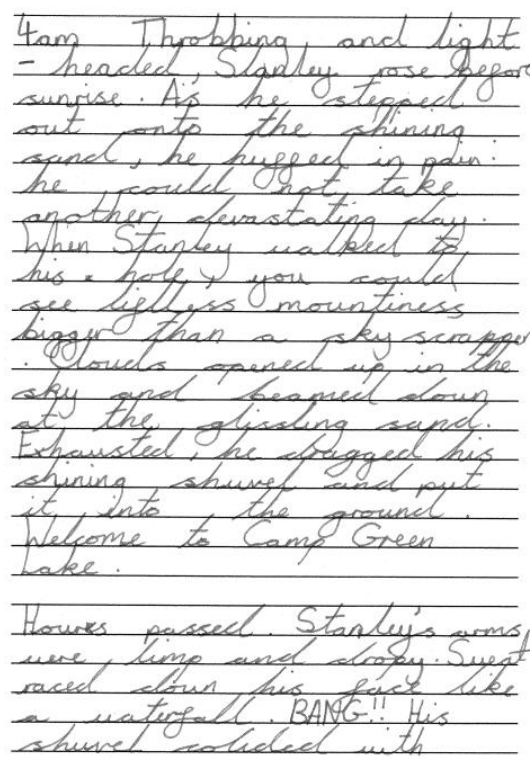 4am Throbbing and light
- headed, Stanley rose before
sunrise. As he stepped
out onto the shining
sand, he huffed in pain:
he could not take
another devastating day.
When Stanley walked to
his hole, you could
see lifless mountiness
bigger than a sky scrapper
. Clouds opened up in the
sky and beamed down
at the glissling sand.
Exhausted, he dragged his
shining shuvel and put
it into the ground.
Welcome to Camp Green
Lake.
Houres passed. Stanley's arms
were limp and dropy. Sweat
raced down his face like
a waterfall. BANG!! His
shuvel colided with